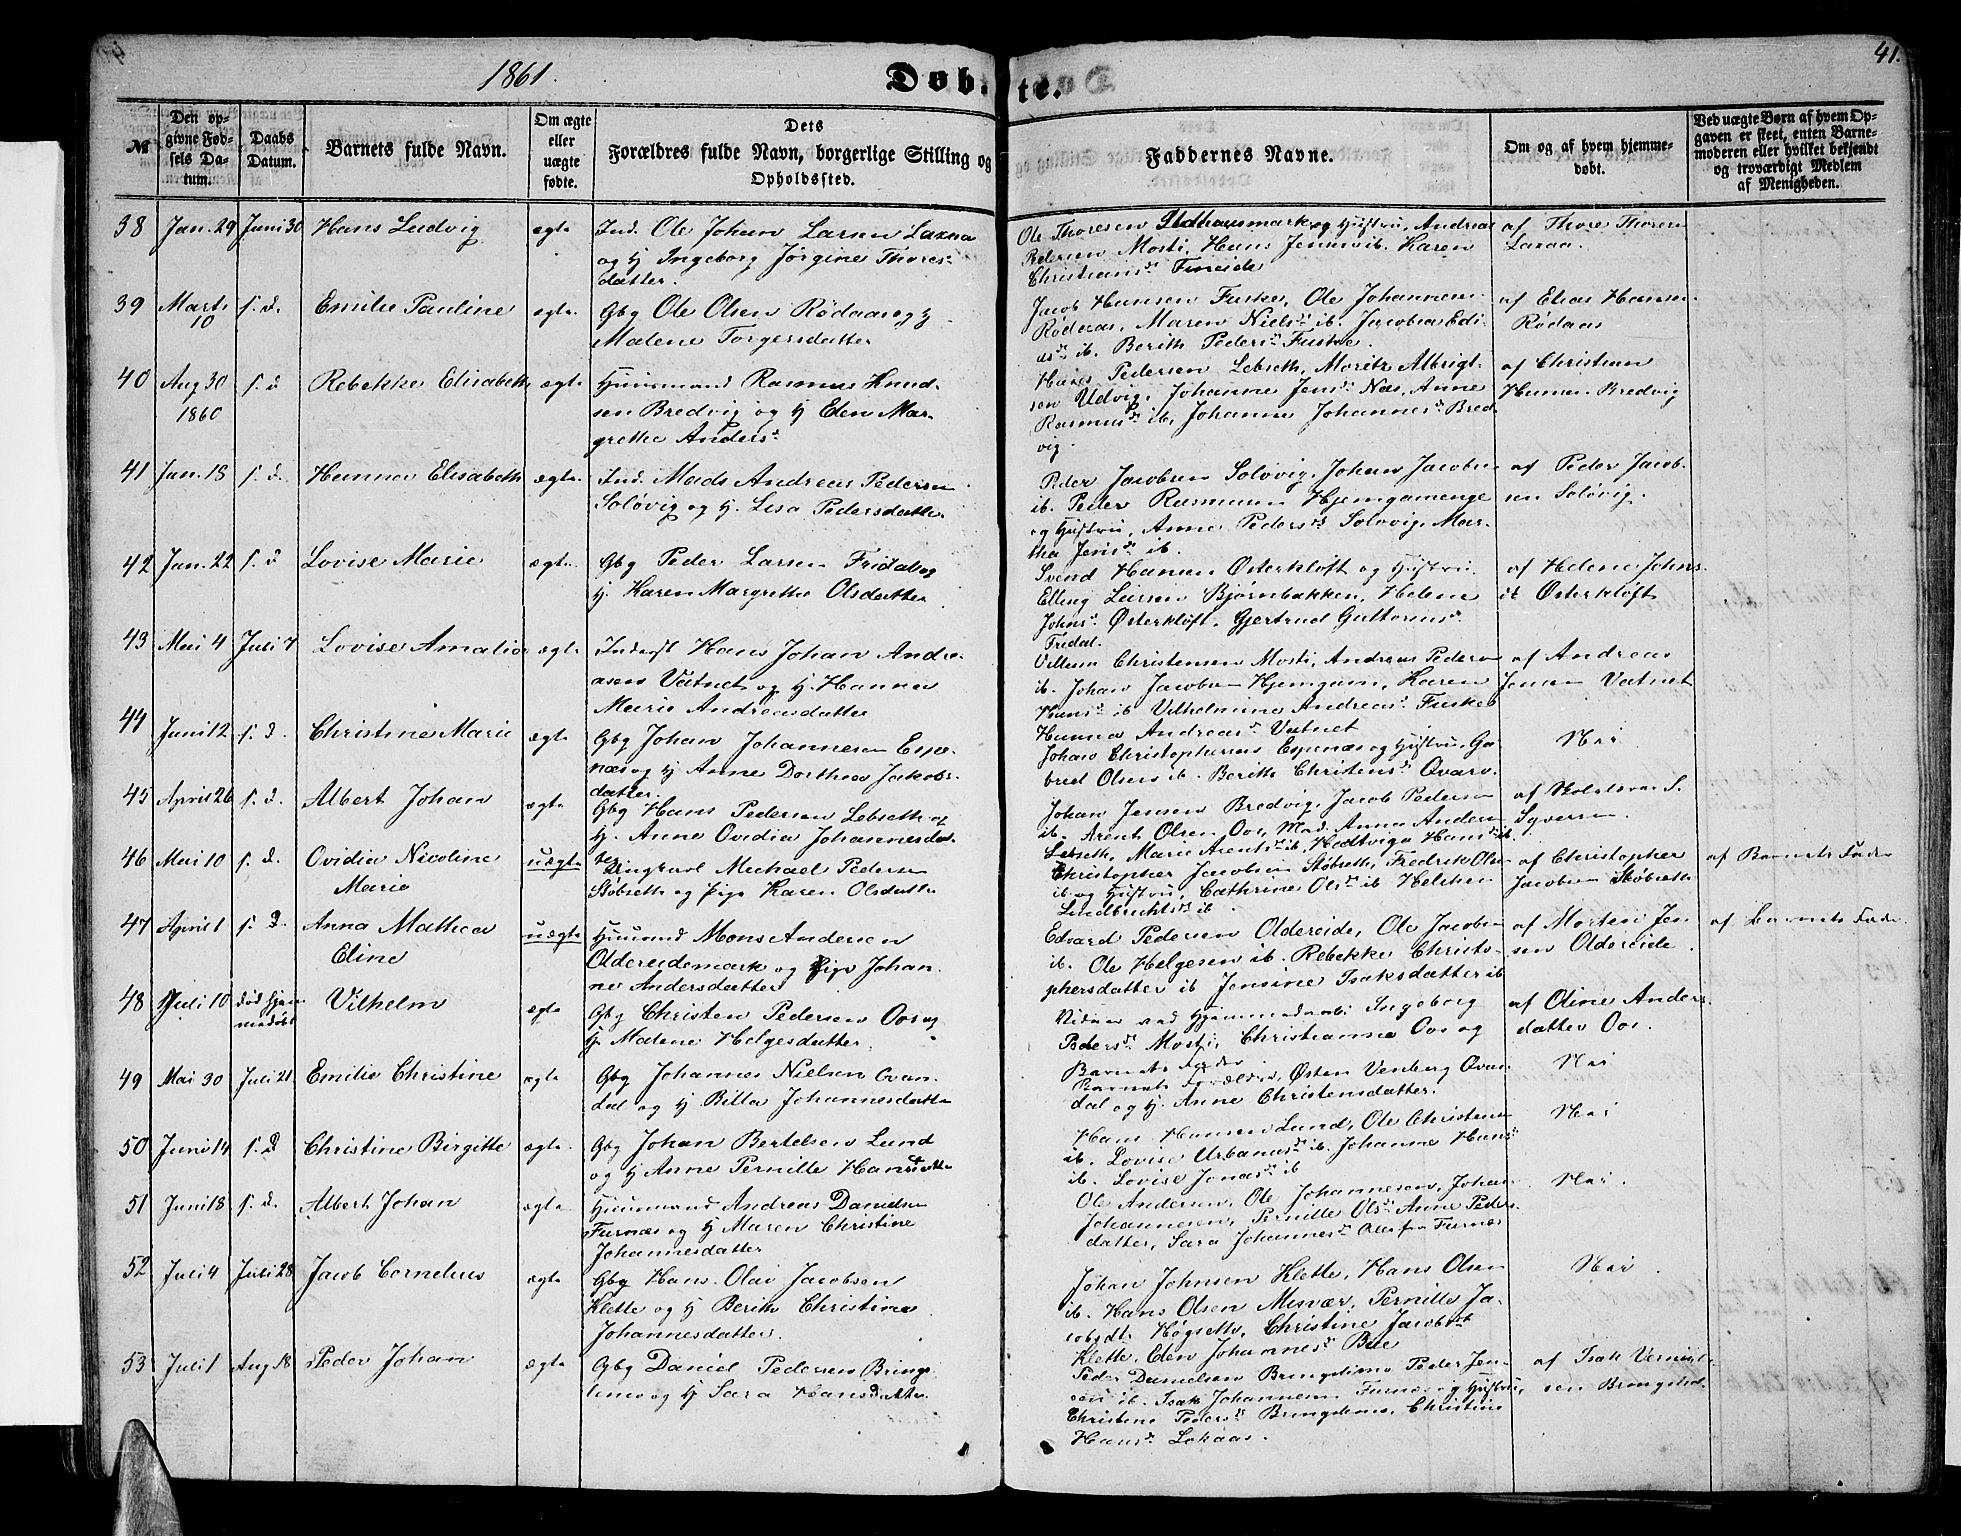 1861.
Döbte.
41.
№
Den opgivne Fødsels Datum.
Daabs Datum.
Barnets fulde Navn.
Om ægte eller uægte fødte.
Dets Forældres fulde Navn, borgerlige Stilling og Opholdssted.
Faddernes Navne.
Om og af hvem hjemmedøbt.
Ved uægte Børn af hvem Opgaven er skeet, enten Barnemoderen eller hvilket bekjendt og troværdigt Medlem af Menigheden.
38 Jan. 29 Juni 30 Hans Ludvig ægte Ind. Ole Johan Larsen Laxaa
og H Ingeborg Jørgine Thores-
datter.
Ole Thoresen og Hustru, Andreas
Pedersen Mosti, Hans Jensen ib. Karen
Christians Fineide
af Thore Thoresen
Laxaa.
39 Marts 10 s. d. Emilie Pauline ægte Gbg Ole Olsen Rødaas og H
Malene Torgersdatter
Jacob Hansen Fuske, Ole Johannesen
Rødaas, Maren Niels ib. Jacobia Edi-
as ib. Berith Peders Fuske.
af Elias Hansen
Rødaas
40 Aug 30 1860 s. d Rebekke Elisabeth ægte Huusmand Rasmus Knud-
sen Bredvig og H Eden Mar-
grethe Anders
Hans Pedersen Lebseth, Moritz Albrigt-
sen Udvig, Johanne Jens Næs, Anne
Rasmus ib, Johanne Johannes Bred-
vig.
af Christian
Hansen Bredvig
41 Jan. 18 s. d. Hanna Elisabeth ægte Ind. Mads Andreas Pedersen
Soløvig og H. Lesa Pedersdatter
Peder Jacobsen Soløvig, Johan Jacobsen
ib. Peder Rasmussen Hjemgamenge
og Hustru, Anne Peders Soløvig, Mar-
tha Jens ib.
af Peder Jacob-
sen Soløvig.
42 Jan. 22 s. d Lovise Marie ægte Gbg Peder Larsen Fridal og
H. Karen Margrethe Olsdatter
Svend Hansen Østerkløft og Hustru.
Elling Larsen Bjørnbakken, Helene
Johns Østerkløft, Gjertrud Guttorms
Fridal.
af Helene Johns-
Østerkløft
43 Mai 4 Juli 7 Lovise Amalie ægte Inderst Hans Johan Andre-
asen Vatnet og H. Hanna
Marie Andreasdatter
Villum Christensen Mosti, Andreas Pedersen
ib. Johan Jacobsen Hjemgam, Karen
Hans ib Vilhelmine Andreas Fuske
Hanna Andreas Vatnet
af Andreas
Jensen Vatnet
44 Juni 12 s. d. Christine Marie ægte Gbg Johan Johannesen Espe-
næs og H Anne Dorthea Jakobs-
datter.
Johan Christophersen Espenæs og Hustru, Ga-
briel Olsen ib. Berith Christens Qvarv.
Nei
45 April 26 s. d. Albert Johan ægte Gbg Hans Pedersen Lebseth og
H. Anne Ovidia Johannesdat-
ter
Johan Jensen Bredvig, Jacob Pedersen
ib. Arent Olsen Oos, Mad. Anna Andersen
Lebseth, Marie Arents ib, Hedtviga Hans ib
af S.
Syversen.
46 Mai 10 s. d. Ovidia Nicoline
Marie uægte Ungkarl Michael Pedersen
Støbseth og Pige Karen Olsdatter
Christopher Jacobsen Støbseth, Fredrik Olsen
ib og Hustru, Cathrine Ols ib
ib
af Christopher
Jacobsen Støbseth
af Barnets Fader
47 April 1 s. d. Anna Mathea
Eline uægte Huusmand Mons Andersen
Oldereidemark og Pige Johan-
ne Andersdatter
Edvard Pedersen Oldereide, Ole Jacobsen
ib. Ole Helgesen ib. Rebekke Christo-
phersdatter ib Jensine Isaksdatter ib
af Morten Jen-
sen Oldereide.
af Barnets Fader
48 Juli 10 død hjem-
medøbt Vilhelm ægte Gbg Christen Pedersen Oos og
H. Malene Helgesdatter.
Vidner ved Hjemmedaab Ingeborg
Peders Mosti, Christianna Oos og
Barnets Fader
af Oline Anders-
datter Oos.
49 Mai 30 Juli 21 Emilie Christine ægte Gbg Johannes Nielsen Qvan-
dal og H Bella Johannesdatter
Barnets Forældre, Østen Venberg Qvan-
dal og H. Anne Christensdatter.
Nei
50 Juni 14 s. D Christine Birgitte ægte. Gbg Johan Bertelsen Lund
og H Anne Pernille Hansdatter
Hans Hansen Lund, Ole Christensen
ib. Lovise Urbanus ib. Johanne Hans
ib. Lovise Jonas ib
Nei
51 Juni 18 s. d. Albert Johan ægte Huusmand Andreas Danielsen
Furnæs og H Maren Christine
Johannesdatter
Ole Andersen, Ole Johannesen, Johan
Johannesen, Pernille Ols Anne Peders-
datter, Sara Johannes Alle fra Furnæs
Nei.
52 Juli 4 Juli 28 Jacob Cornelius ægte Gbg Hans Olai Jacobsen
Klette og H Berith Christine
Johannesdatter.
Johan Johnsen Klette, Hans Olsen
ib. Hans Olsen Misvær, Pernille Ja-
cobsdt. Høgseth, Christine Jacobs
Klette, Eden Johannes Bue
Nei.
53 Juli 1 Aug 18 Peder Johan ægte Gbg Daniel Pedersen Brings-
limo og H Sara Hansdatter
Peder Danielsen Bringslimo Peder Jen-
sen ib. Isak Johannesen Furnæs og Hustru,
Christine Peders Bringslimo, Christine
Hans Lohaas.
af Isak
sen Bringsli.